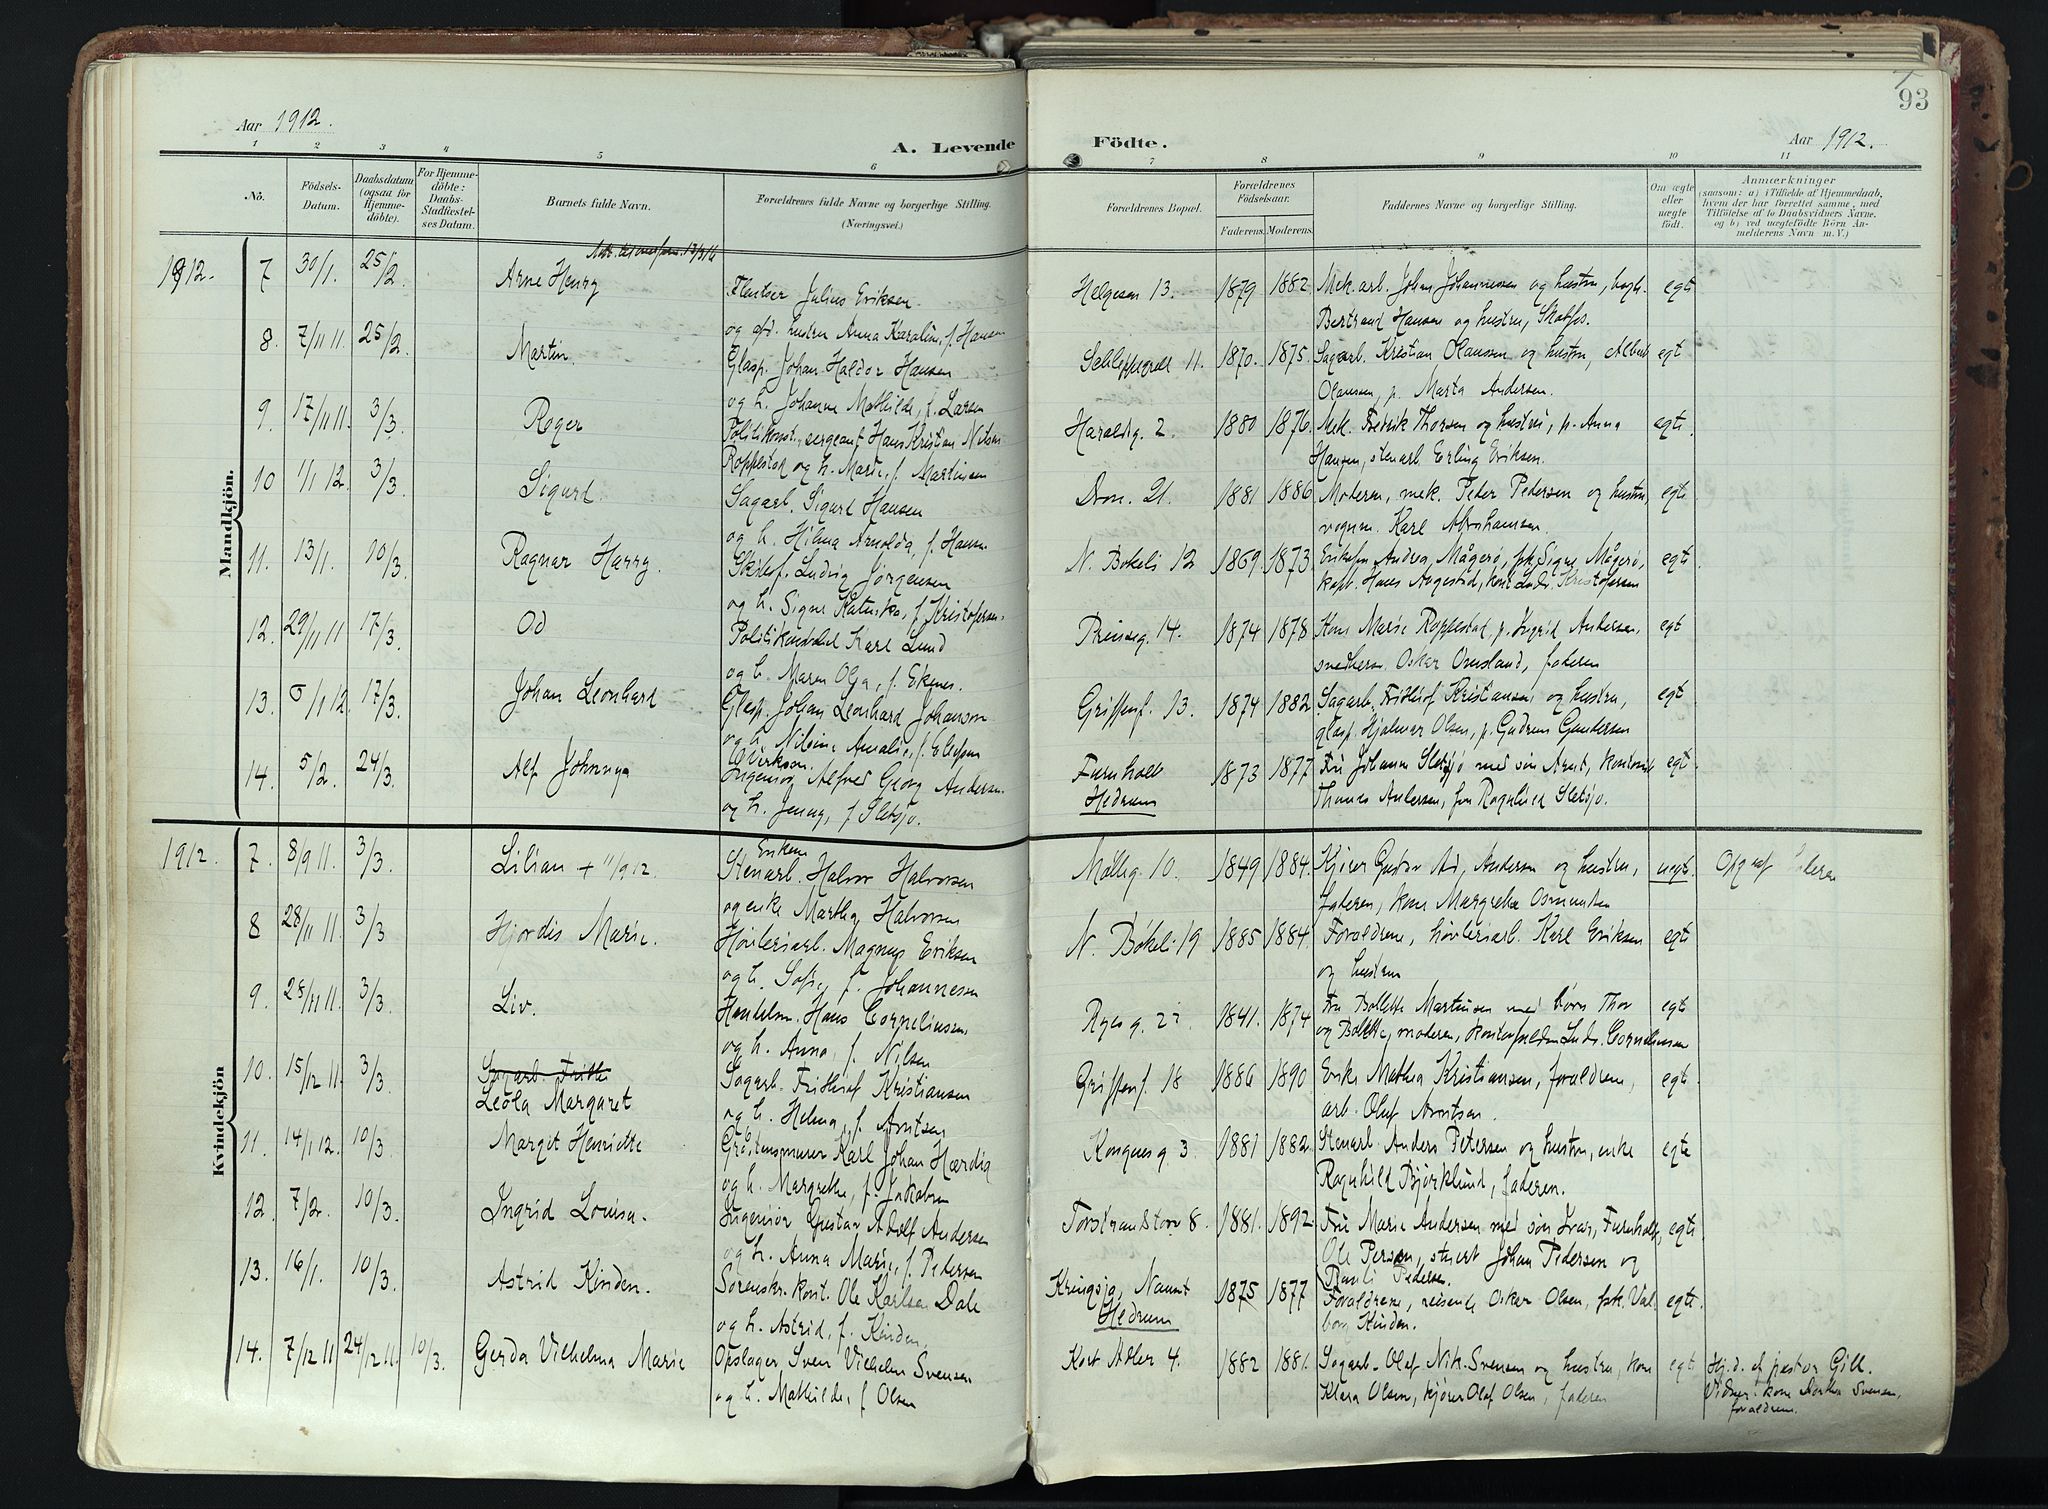 93
Aar 1912.
A. Levende Födte.
Aar 1912.
1 2 3 4 5 6 7 8 9 10 11
No.
Födsels-Datum.
Daabsdatum (ogsaa for Hjemme-döbte).
For Hjemme-döbte: Daabs-Stadfæstel-ses Datum.
Barnets fulde Navn.
Forældrenes fulde Navne og borgerlige Stilling. (Næringsvei.)
Forældrenes Bopæl.
Forældrenes Födselsaar.
Faderens. Moderens.
Faddernes Navne og borgerlige Stilling.
Om ægte eller uægte födt.
Anmærkninger
(saasom: a) i Tilfælde af Hjemmedaab, hvem der har forrettet samme, med Tilföielse af to Daabsvidners Navne, og b) ved uægtefödte Börn Anmelderens Navn m. V.)
Mandkjön.
1912. 7 30/1. 25/2. Arne Henry Julius Eriksen Helgesen 13. 1879 1882 Mek. arb. Johan Johannessen og hustru, egte
og hustru Anna Karoline, f. Hansen Bertrand Hansen og hustru,
8. 7/11 11. 25/2. Martin Glasp. Johan Haldor Hansen 11. 1870. 1875. Sagarb. Kristian Olaussen og hustru, Albert egt
og h. Johanne Mathilde, f. Larsen Olaussen, p. Marta Andersen.
9. 17/11 11. 3/3. Roger Politikonst., sergeant Hans Kristian Nilsen Haraldsg. 2. 1880 1876. Mek. Fredrik Thorsen og hustru, p. Anna egte
Roppestad og h. Marie, f. Martinsen Hansen, stenarb. Erling Eriksen.
10 1/1 12. 3/3. Sigurd Sagarb. Sigurd Hansen Dron. 21. 1881 1886 Moderen, mek. Peder Pedersen og hustru, egte
og h. Hilma Arnolda, f. Hansen Karl Abrahamsen
11. 13/1. 10/3. Ragnar Harry. Ludvig Jørgensen N. Bøkeli 12 1869. 1873. Andrea Mågerø, frk. Signe Mågerø, egte
og h. Signe f. Kristofersen. kapt. Hans Augestad, Kristofersen
12. 29/11 11 17/3. Od Politikonstabel Karl Lund Prinseg. 14. 1874 1878 Kone Marie Roppestad p. Ingrid Andersen, egt
og h. Maren Olga, f. Ekenes. Oskar Omsland, faderen
13. 5/1 12. 17/3. Johan Leonhard Glasp. Johan Leonhard Johanson Griffenf. 13. 1874 1882 Sagarb. Frithiof Kristiansen og hustru, egt
og h. Nilsine Amalie, f. glasp. Hjalmar Olsen, p. Gudrun Gundersen
14. 5/2. 24/3. Alf Johnny Ingeniør Alfred Georg Andersen Furuholt 1873 1877 Fru Johanne Sletsjø med søn Arnt, egte
og h. Jenny, f. Sletsjø. Hedrum Thomas Andersen, frk Ragnhild Sletsjø.
Kvindekjön
1912. 7. 8/9 11. 3/3. Lilian + 11/9 12. Stenarb. Halvor Halvorsen Møllig. 10. 1849 1884. Kjører Gustav Ad. Andersen og hustru, uegt. Opg af faderen
og enke Martha Halvorsen faderen, kone Margrethe Osmundsen
8 28/11 11. 3/3 Hjørdis Marie. Høvleriarb. Magnus Eriksen N. Bøkeli 19 1885 1884. Forældrene, høvleriarb. Karl Eriksen egte
og h. Sofie, f. Johannesen og hustru
9. 28/11 11. 3/3 Liv. Handelsm. Hans Corneliussen Ryes g. 1841. 1874 Fru Bolette Martinsen med børn Thor egte
og h. Anna, f. Nilsen og Bolette, moderen, Corneliussen
10. 15/12 11. 3/3 Sagarb. Frithi
Leola Margaret Sagarb. Frithiof Kristiansen Griffenf. 18 1886 1890 Enke Mathea Kristiansen, forældrene, egte
og h. Helma, f. Arntsen arb. Oluf Arntsen.
11. 14/1 12. 10/3. Margit Henriette Karl Johan Hærdig Kongens g. 3. 1881 1882. Stenarb. Anders Petersen og hustru, enke egte
og h. Margrethe, f. Jakobsen Ragnhild Bjørklund, faderen.
12. 7/2. 10/3. Ingrid Louisa. Ingeniør Gustav Adolf Andersen Torstrandstorv 8. 1881. 1892. Fru Marie Andersen med søn Ivar, Furuholt, egte
og h. Anna Marie, f. Pedersen Ole Persen, stuert Johan Pedersen og
Pedersen.
13. 16/1. 10/3. Astrid Kinden. Sorenskr. kont. Ole Karlsen Dale Kringsjø, Nanset 1875 1877 Forældrene, reisende Oskar Olsen, frk. Val- egte
og h. Astrid, f. Kinden. Hedrum borg Kinden.
14. 7/12 11 24/12 11. 10/3. Gerda Vilhelma Marie Opslager Sven Vilhelm Svensen Kort Adler 4. 1882 1881. Sagarb. Olaf Nik. Svensen og hustru, kone egt. Hj. d. af pastor Gill.
og h. Mathilde, f. Olsen Klara Olsen, kjører Olaf Olsen, faderen Vidner: kone Dorthea Svensen,
forældrene.